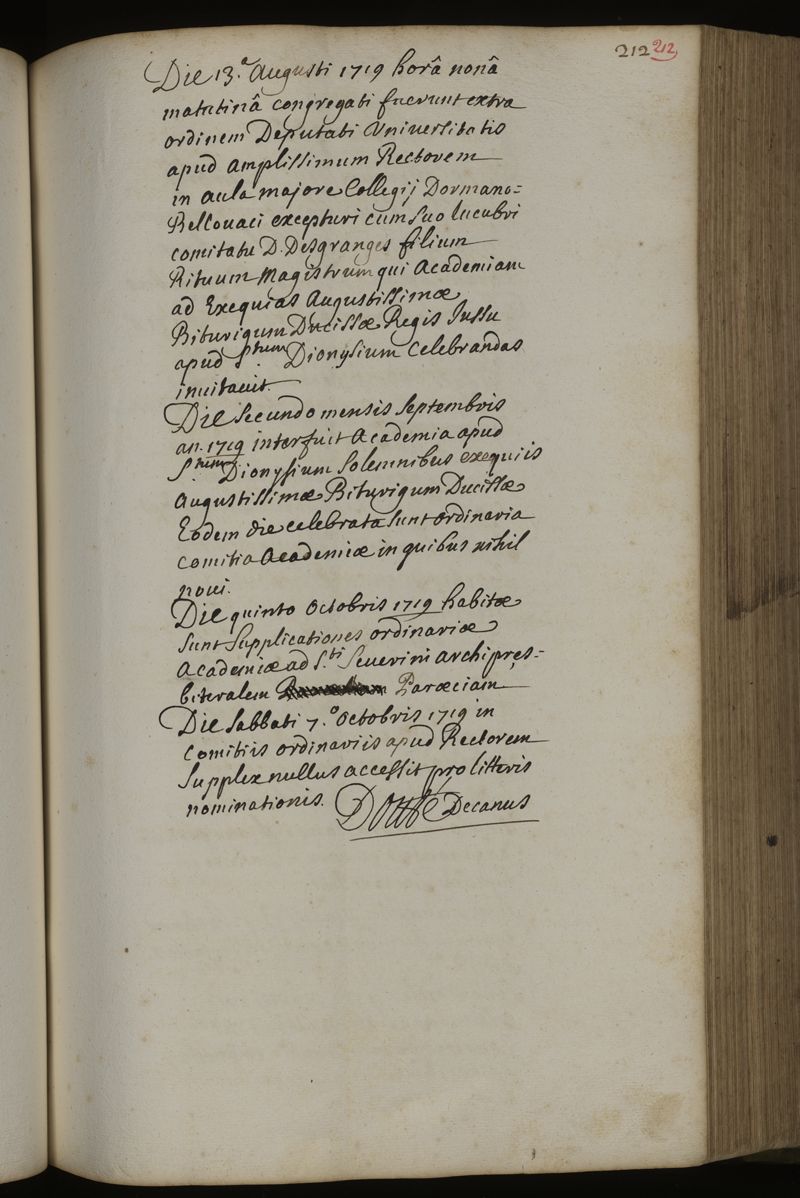 212 212
Die 13.a Augusti 1719 horâ nonâ
matutinâ congregati fuerunt extra
ordinem Deputati Vniversitatis
apud amplissimum Rectorem
in aula majore Collegij Dormano=
Bellouaci excepturi cum suo lucubri
comitatu D. Desgranges filium
Rituum Magistrum qui Academiam
ad Exequias Augustissimæ
Biturigum Ducissæ Regis Jussu
apud Stum Dionysium Celebrandas
inuitauit.
Die secundo mensis Septembris
an. 1719 interfuit Academia apud
Stum Dionysium Solemnibus exequiis
Augustissimæ Biturigum Ducissæ
Eodem die celebrata sunt ordinaria
comitia Academiæ in quibus nihil
noui.
Die quinto Octobris 1719 habitæ
sunt supplicationes ordinariæ
Academiæ ad S.ti Seuerini archipres=
biteralem Paræciam
Die Sabbati 7.o Octobris 1719 in
Comitiis ordinariis apud Rectorem
supplex nullus accessit pro litteris
nominationis. Decanus